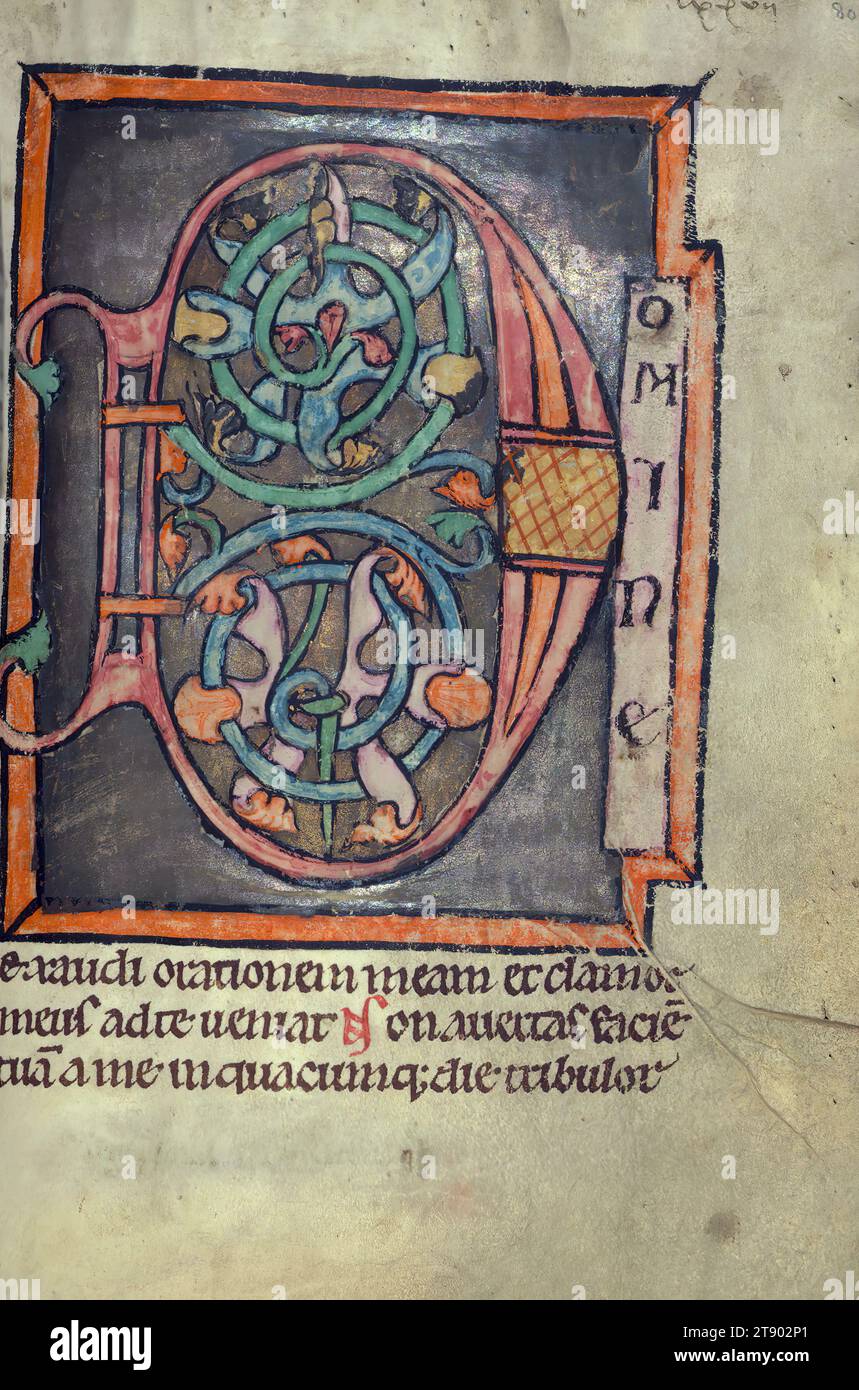 80
D
O
M
I
N
e
exaudi orationem meam et clamor
meus ad te ueniat Non auertas faciē
tuā a me in quacumq; die tribulor
alamy
Image ID: 2T902P1
www.alamy.com